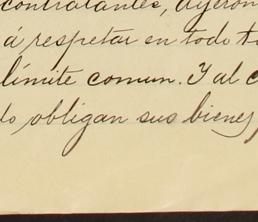 contratantes,
á respetar en todo
límite comun. Y al
do obligan sus bienes